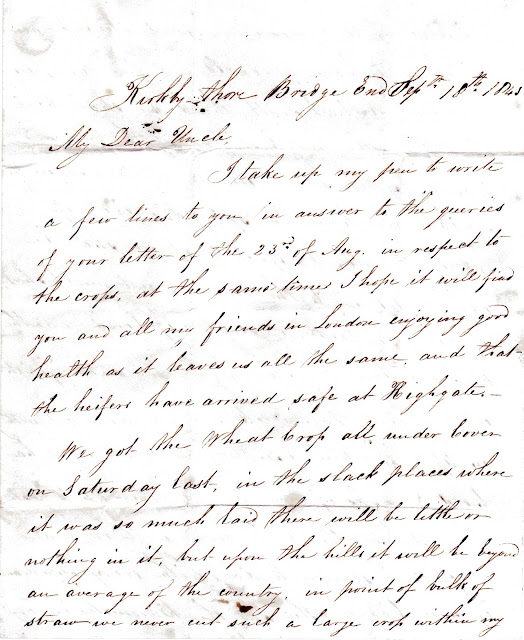 Kirkby-thore Bridge End Septh 18th 1843
My Dear Uncle,
I take up my pen to write
a few lines to you in answer to the queries
of your letter of the 23rd of Aug. in respect to
the crops, at the same time I hope it will find
you and all my friends in London enjoying good
health as it leaves us all the same, and that
the heifers have arrived safe at Highgate.-
We got the Wheat Crop all under Cover
on Saturday last, in the slack places where
it was so much laid there will be little or
nothing in it, but upon the hills it will be beyond
an average of the country, in point of bulk of
straw we never cut such a large crop within my